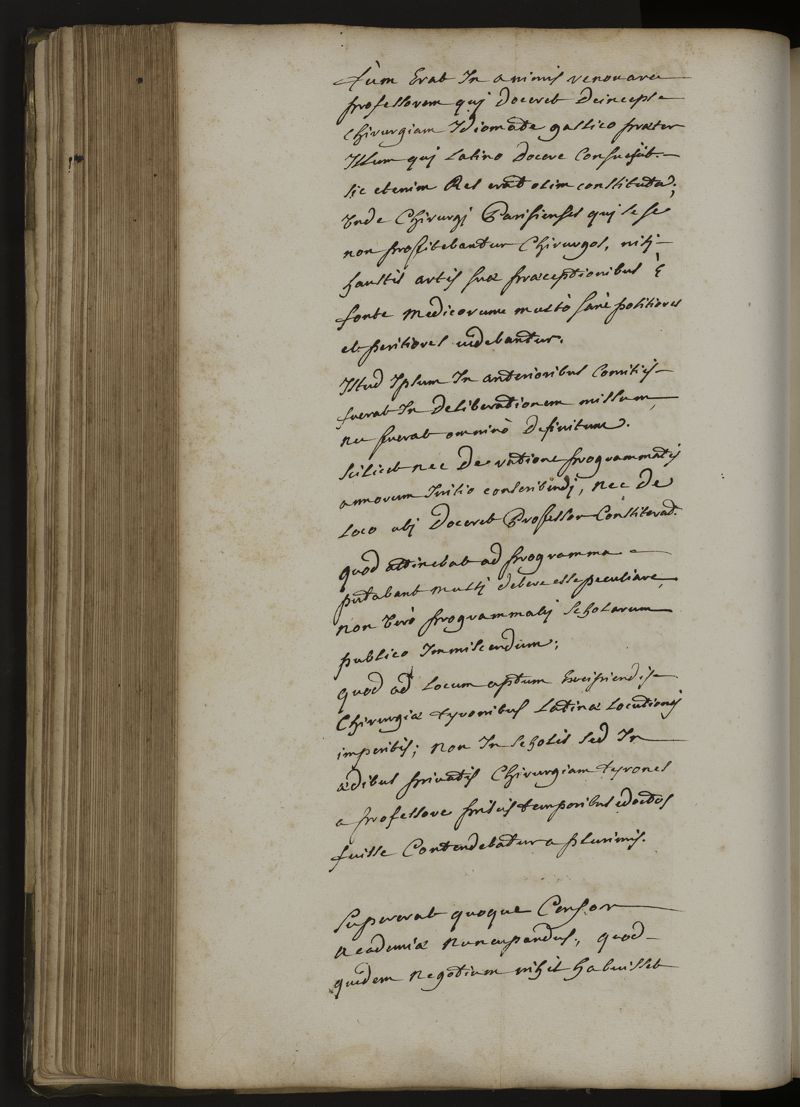 tum Erat In animis renovare
professorem quj doceret deinceps
chirurgiam Idiomate gallico præter
Illum quj latino docere consuevit
sic etenim Res erat olim constituta;
Unde Chirurgj Parisienses quj se se
non profitebantur Chirurgos, nisj
haustis artis suæ præceptionibus è
fonte medicorum multò sanè politiores
et peritiores videbantur.
Istud Ipsum In anterioribus Comitijs
fuerat In deliberationem missum,
nec fuerat omninò definitum.
scilicet nec De ratione programmatis
annorum Initio conscribendj, nec De
loco ubj Doceret Professor Constiterat.
quod attinebat ad programma
putabant multj debere esse peculiare,
non verò programmatj scholarum
publico Immiscendum;
quod ad locum aptum Excipiendis
Chirurgiæ tyronibus latinæ locutionis
imperitis; non In scholis sed In
ædibus privatis Chirurgiam tyrones
a professore priscis temporibus edoctos
fuisse Contendebatur a plurimis.
supererat quoque Censor
Academiæ Nuncupandus, quod
quidem negotium nihil habuisset